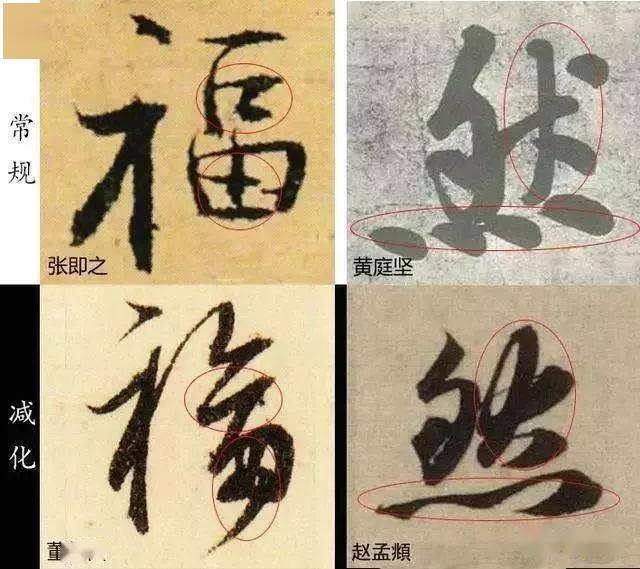 常规
福
张即之
然
黄庭坚
减化
福
董
然
赵孟頫